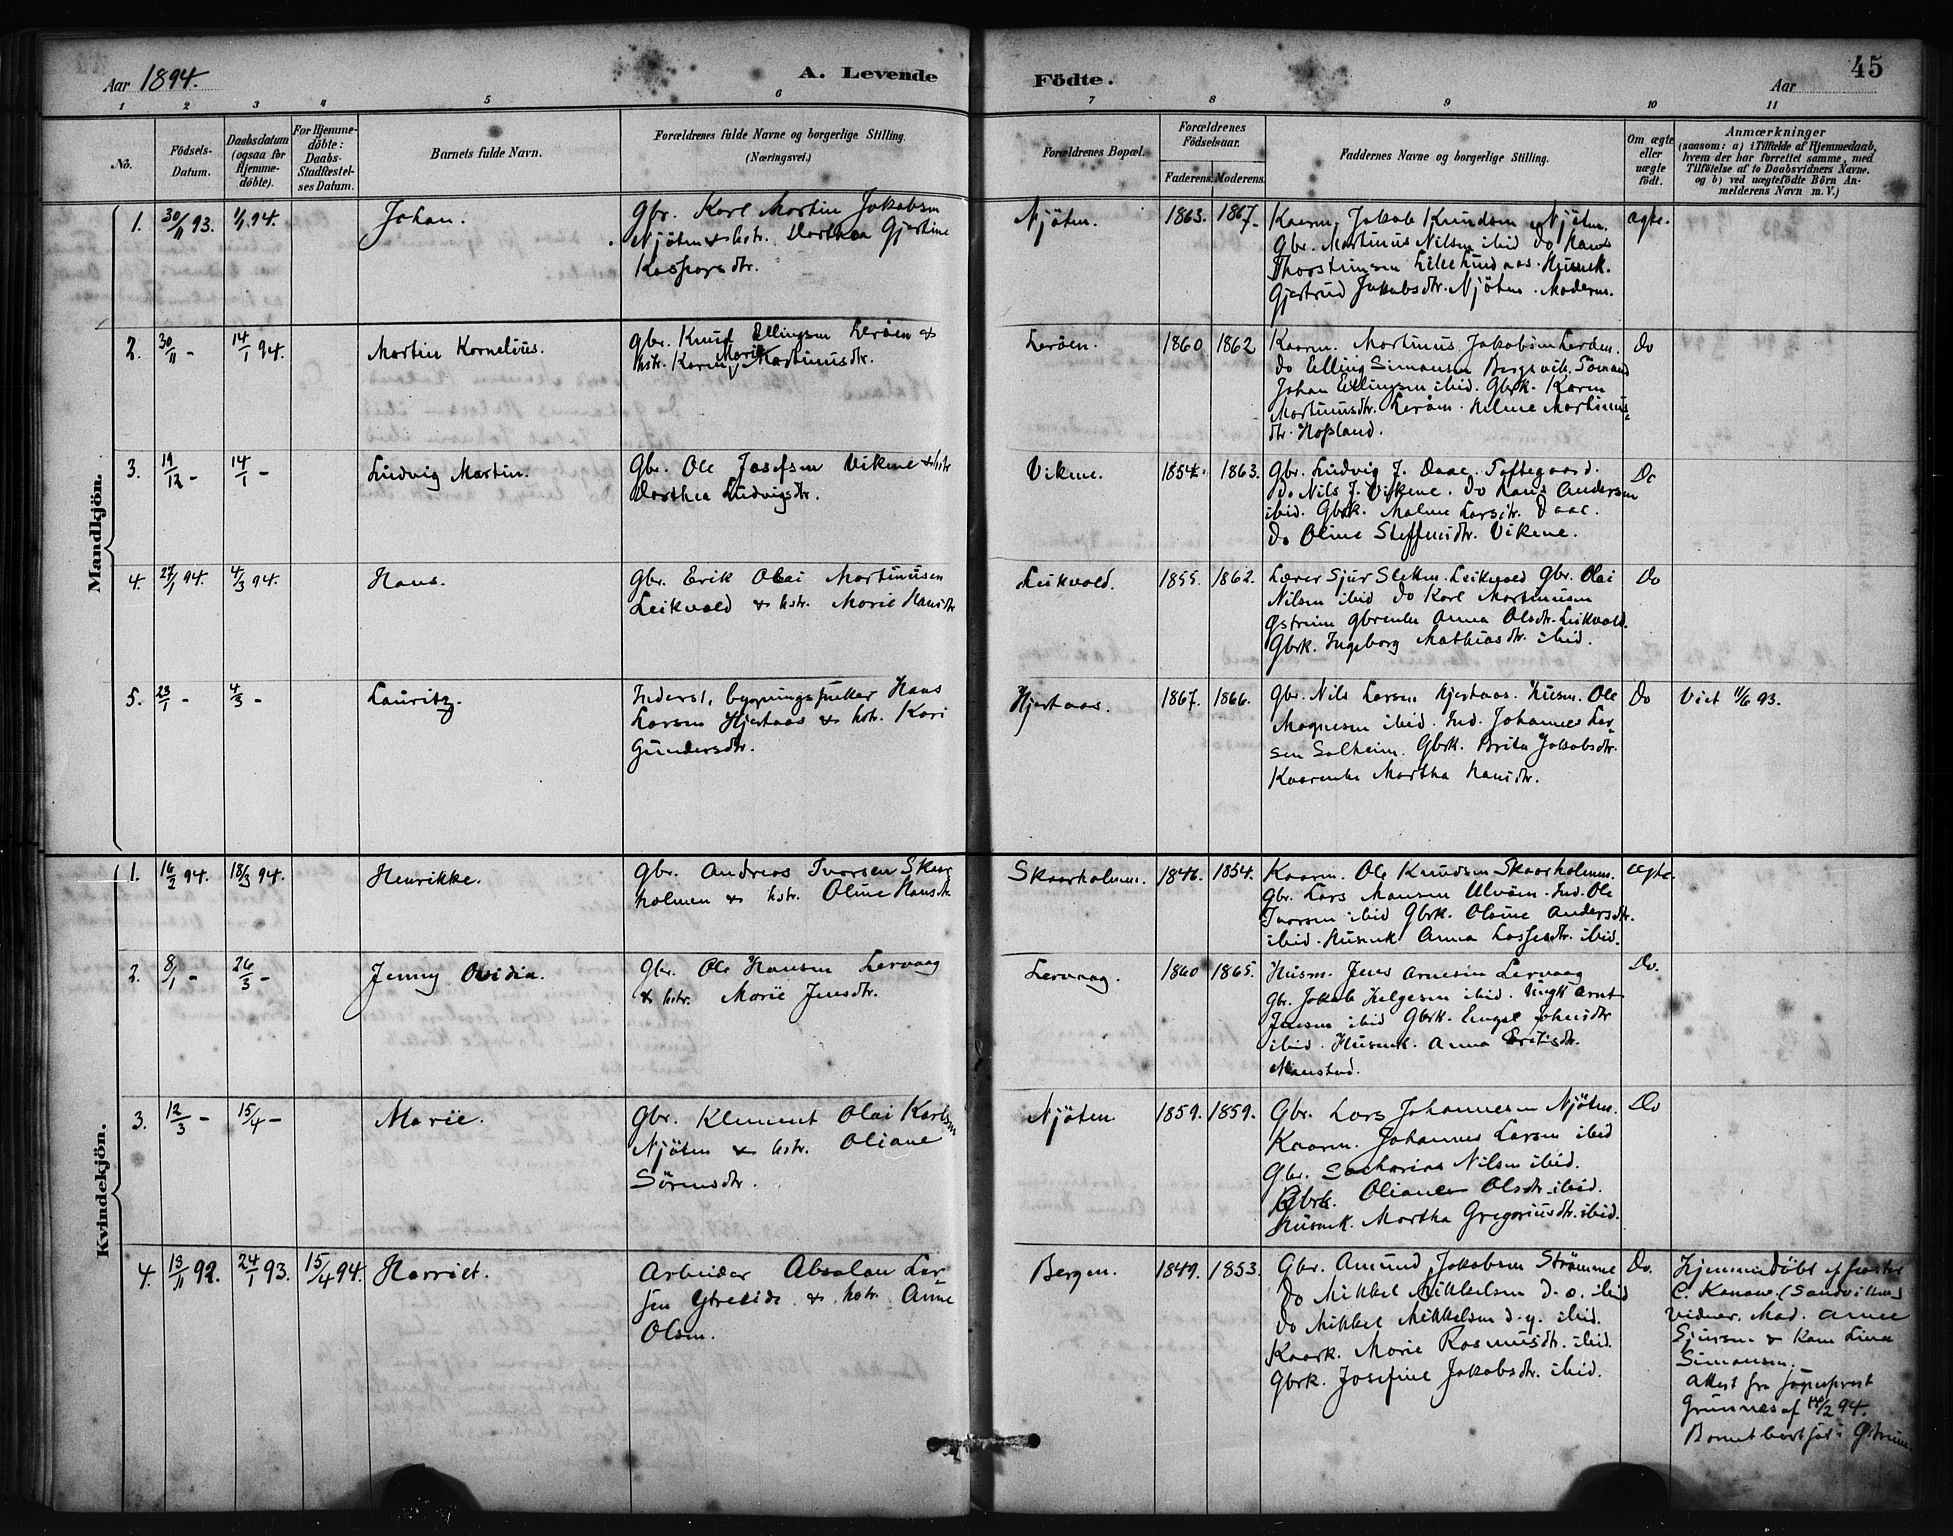 Aar 1894.
A. Levende
Födte.
Aar
45
1 2 3 4 5 6 7 8 9 10 11
No.
Födsels-
Datum.
Daabsdatum
(ogsaa for
Hjemme-
döbte).
For Hjemme-
döbte:
Daabs-
Stadfæstel-
ses Datum.
Barnets fulde Navn.
Forældrenes fulde Navne og borgerlige Stilling.
(Næringsvei.)
Forældrenes Bopæl.
Forældrenes
Födselsaar.
Faderens. Moderens.
Faddernes Navne og borgerlige Stilling.
Om ægte
eller
uægte
födt.
Anmærkninger
(saasom: a) i Tilfælde af Hjemmedaab,
hvem der har forrettet samme, med
Tilföielse af to Daabsvidners Navne.
og b) ved uægtefödte Börn An-
melderens Navn m. V.)
Mandkjön.
1. 30/11 93. 1/1 94. Johan.
Gbr. Karl Martin Jakobsen
Njöten & hstr. Dorthea Gjertine
Kaspersdtr.
Njöten. 1863. 1867.
Kaarm. Jakob Knudsen Njöten.
Gbr. Martinus Nilsen ibid Do Hans
Thorstensen Lillelindaas. Husmk.
Gjertrud Jakobsdtr. Njöten. Moderen.
ægte.
2. 30/11 - 14/1 94. Martin Kornelius.
Gbr. Knut Ellingsen Leröen &
hstr. Karen Marie Martinusdtr.
Leröen. 1860 1862
Kaarm. Martinus Jakobsen Leröen.
Do Elling Simonsen Bergsvik. Sömand
Johan Ellingsen ibid. Gbrk. Karen
Martinusdtr. Leröen. Helene Martinus-
dtr. Hopland.
Do
3. 19/12 - 14/1 - Ludvig Martin.
Gbr. Ole Josefsen Vikene & hstr
Dorthea Ludvigsdtr.
Vikene. 1854. 1863.
Gbr. Ludvig J. Daae. Toftegaard.
Do Nils J. Vikene. Do Hans Andersen
ibid. Gbrk. Malene Larsdtr. Daae.
Do Oline Steffensdtr. Vikene.
Do
4. 27/1 94. 4/3 94. Hans.
Gbr. Erik Olai Martinusen
Leikvold & hstr. Marie Hansdtr
Leikvold. 1855. 1862.
Lærer Sjur Sletten. Leikvold Gbr. Olai
Nilsen ibid Do Karl Martinusen
Østreim Gbrenke Anna Olsdtr. Leikvold.
Gbrk. Ingeborg Mathiasdtr. ibid.
Do
5. 23/1 - 4/3 - Lauritz.
Inderst, bygningssnekker Hans
Larsen Hjertaas & hstr. Kari
Gundersdtr.
Hjertaas. 1867. 1866.
Gbr. Nils Larsen Hjertaas. Husm. Ole
Magnesen ibid. Ind. Johannes Lar-
sen Solheim. Gbrk. Brita Jakobsdtr.
Kaarenke Martha Hansdtr.
Do Viet 11/6 93.
Kvindekjön.
1. 16/2 94. 18/3 94. Henrikke.
Gbr. Andreas Ivarsen Skaar
holmen & hstr. Oline Hansdtr
Skaarholmen. 1846. 1854.
Kaarm. Ole Knudsen Skaarholmen.
Gbr. Lars Monsen Ulvöen. Ind. Ole
Ivarsen ibid Gbrk. Olaine Andersdtr.
ibid. Husmk Anna Lassesdtr. ibid.
ægte.
2. 8/1 - 26/3 - Jenny Ovidia.
Gbr. Ole Hansen Lervaag
& hstr. Marie Jensdtr.
Lervaag. 1860 1865.
Husm. Jens Arnesen Lervaag
Gbr. Jakob Helgesen ibid. Ungk Arnt
Jensen ibid Gbrk. Engel Johnsdtr
ibid. Husmk. Anna
Do.
3. 12/3 - 15/4 - Marie.
Gbr. Klement Olai Karlsen
Njöten & hstr. Oliane
Sörensdtr.
Njöten 1859. 1859.
Gbr. Lars Johannesen Njöten.
Kaarm. Johannes Larsen ibid
Gbr. Sacharias Nilsen ibid.
Gbrk. Oliane Olsdtr. ibid.
Husmk. Martha Gregoriusdtr. ibid.
Do
4. 13/11 92. 24/1 93. 15/4 94. Harriet.
Arbeider Absalon Lar-
sen Ytreeide & hstr. Anne
Olsen.
Bergen. 1849. 1853.
Gbr. Amund Jakobsen Strömme
Do Mikkel Mikkelsen d. æ. ibid
Do Mikkel Mikkelsen d. y. ibid.
Kaark. Marie Rasmusdtr. ibid.
Gbrk. Josefine Jakobsdtr. ibid.
Do.
Hjemmedöbt af
C. Kanaw. (Sandviken)
vidner. Mad. Anne
Simonsen.
Attest fra Sogneprest
Grunnes af 10/2 94.